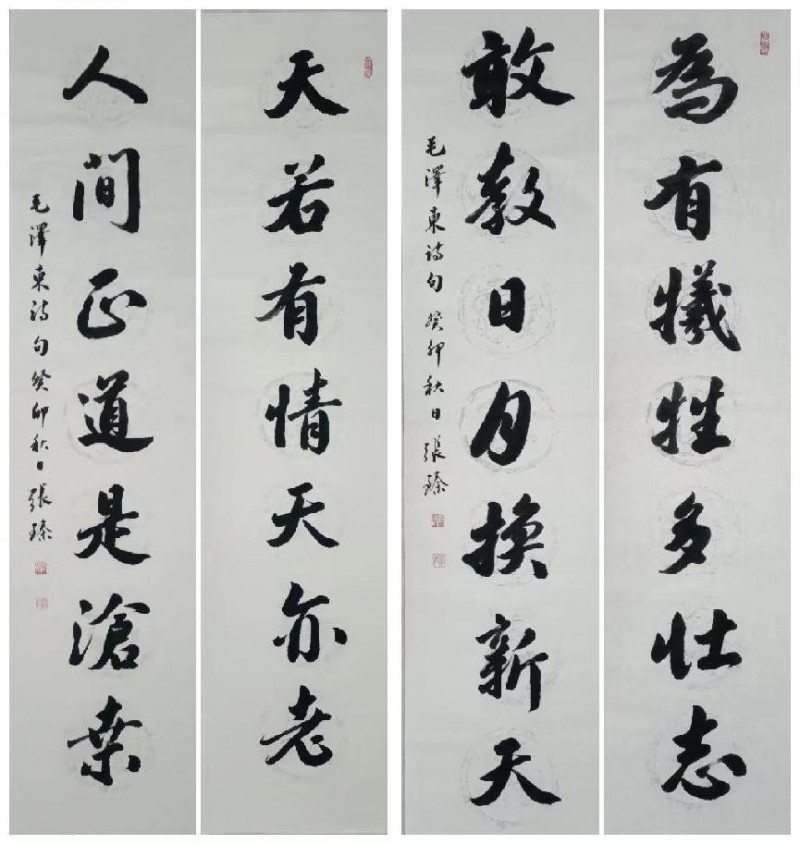 為有犧牲多壯志
敢教日月換新天
毛澤東詩句 癸卯秋日 張臻
天若有情天亦老
人間正道是滄桑
毛澤東詩句癸卯秋日張臻